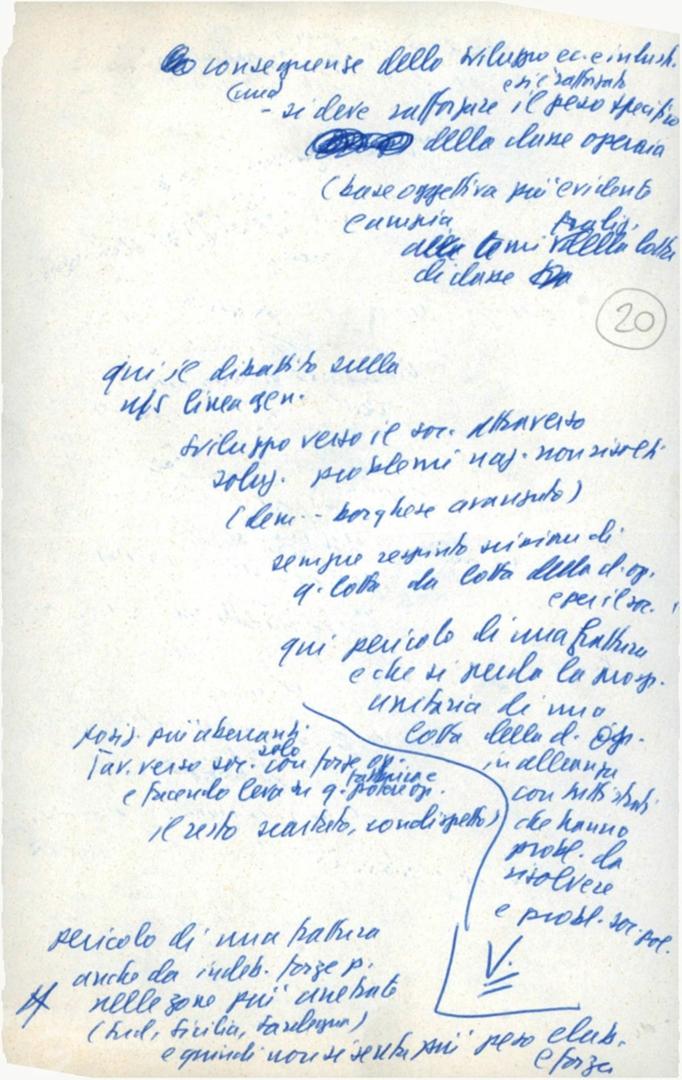 conseguenze dello sviluppo ec. e indust.
(una) e si è rafforzato
- si deve rafforzare il peso specifico
della classe operaia
(base oggettiva più evidente
e ampia
alla lotta
di classe
20
qui il dibattito sulla
ns/ linea gen.
sviluppo verso il soc. attraverso
soluz. problemi naz. non risolti
(dem-- borghese avanzato)
sempre respinto visione di
q. lotta da lotta della cl. op.
e per il soc.
qui pericolo di una frattura
e che si perda la prosp.
unitaria di una
lotta della cl. op.
in alleanza
con tutti strati
che hanno
probl. da
risolvere
e probl. soc. pol.
posiz. più aberranti
solo
av. verso soc. con forze op.
fabbriche
e facendo leva su q. potere op.
il resto scartato, con dispetto)
V.
pericolo di una frattura
anche da indeb. forze p.
nelle zone più arretrate
(Sud, Sicilia, Sardegna)
e quindi non si senta più peso elab.
e forza